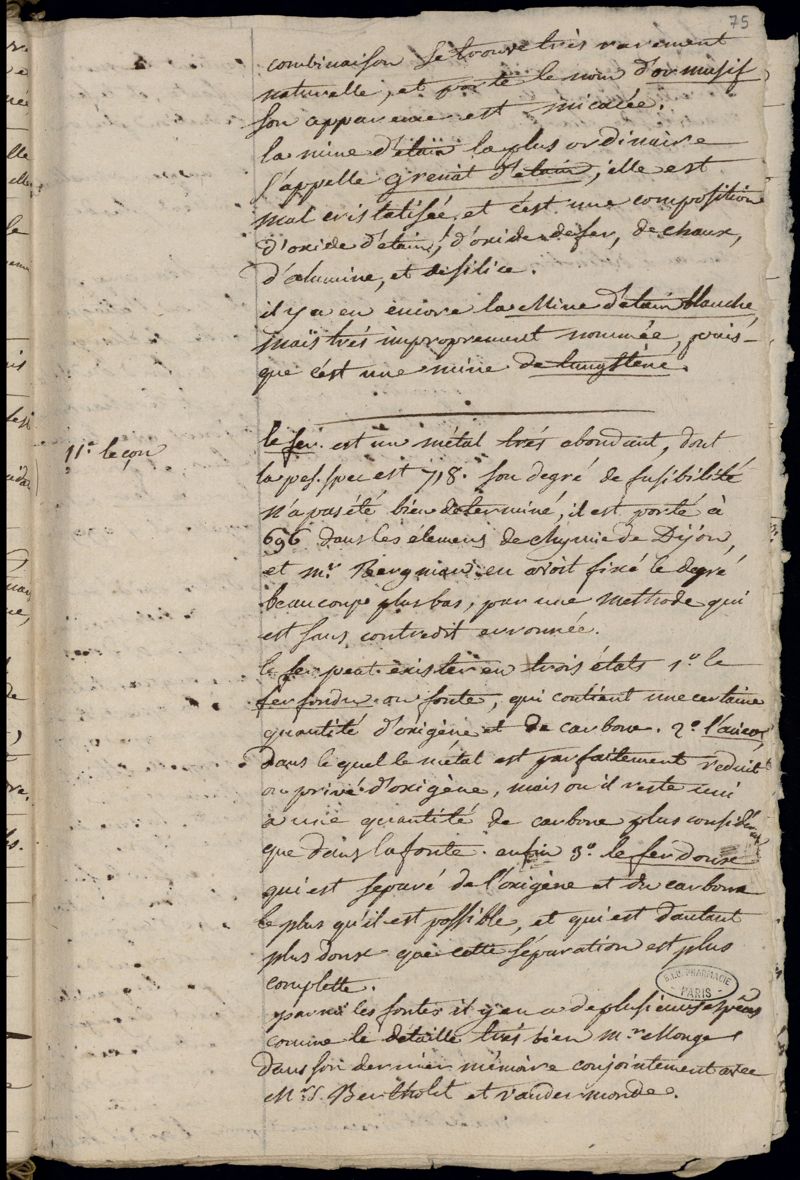 75
combinaison se trouve très rarement
naturelle, et porte le nom d'or musif
son apparence est micacée.
la mine d'étain la plus ordinaire
s'appelle grenat d'étain; elle est
mal cristalisée et c'est une composition
d'oxide d'étain, d'oxide de fer, de chaux,
d'alumine, et de silice.
il y a en encore la Mine d'étain blanche,
mais très improprement nommée, puis-
que c'est une mine de tungstène.
11e leçon
le fer est un métal très abondant, dont
la pes. spec est 718. son degré de fusibilité
n'a pas été bien determiné, il est porté à
696 dans les elemens de chymie de Dijon,
et mr. Bergman en avoit fixé le degré
beaucoup plus bas, par une methode qui
est sans contredit erronnée.
le fer peut exister en trois états 1º le
fer fondu ou fonte, qui contient une certaine
quantité d'oxigène et de carbone. 2º l'acier,
dans lequel le métal est parfaitement reduit
ou privé d'oxigène, mais ou il reste uni
a une quantité de carbone plus considérable
que dans la fonte. enfin 3º. le fer doux
qui est separé de l'oxigène et du carbone
le plus qu'il est possible, et qui est d'autant
plus doux que cette séparation est plus
complette.
B.I.U. PHARMACIE
PARIS
parmi les fontes il y en a de plusieurs espèces
comme le detaille très bien mr Monge
dans son dernier mémoire conjointement avec
Mrs. Bertholet et vandermonde.